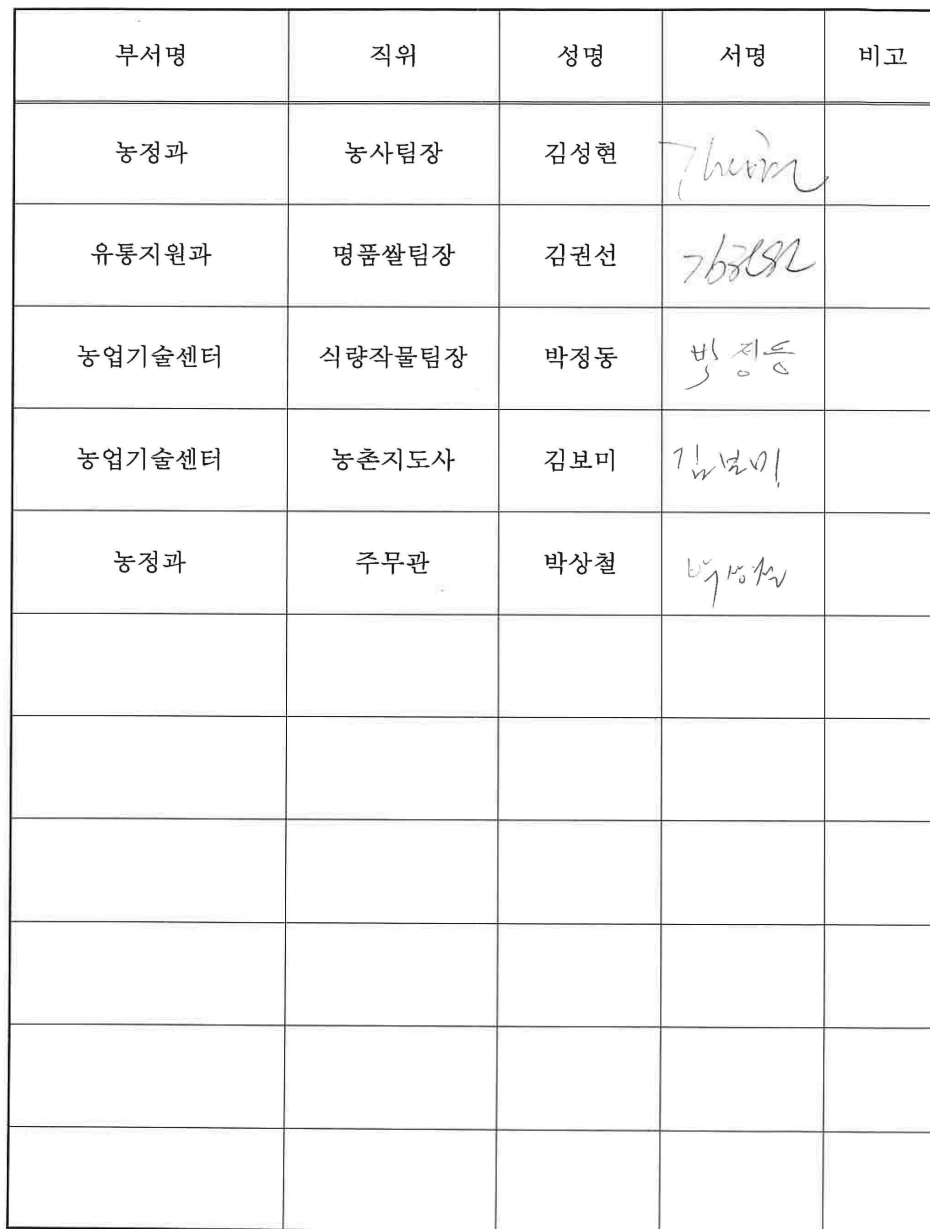 부서명 직위 성명 서명 비고
농정과 농사팀장 김성현
유통지원과 명품쌀팀장 김권선
농업기술센터 식량작물팀장 박정동 박정동
농업기술센터 농촌지도사 김보미 김보미
농정과 주무관 박상철 박상철